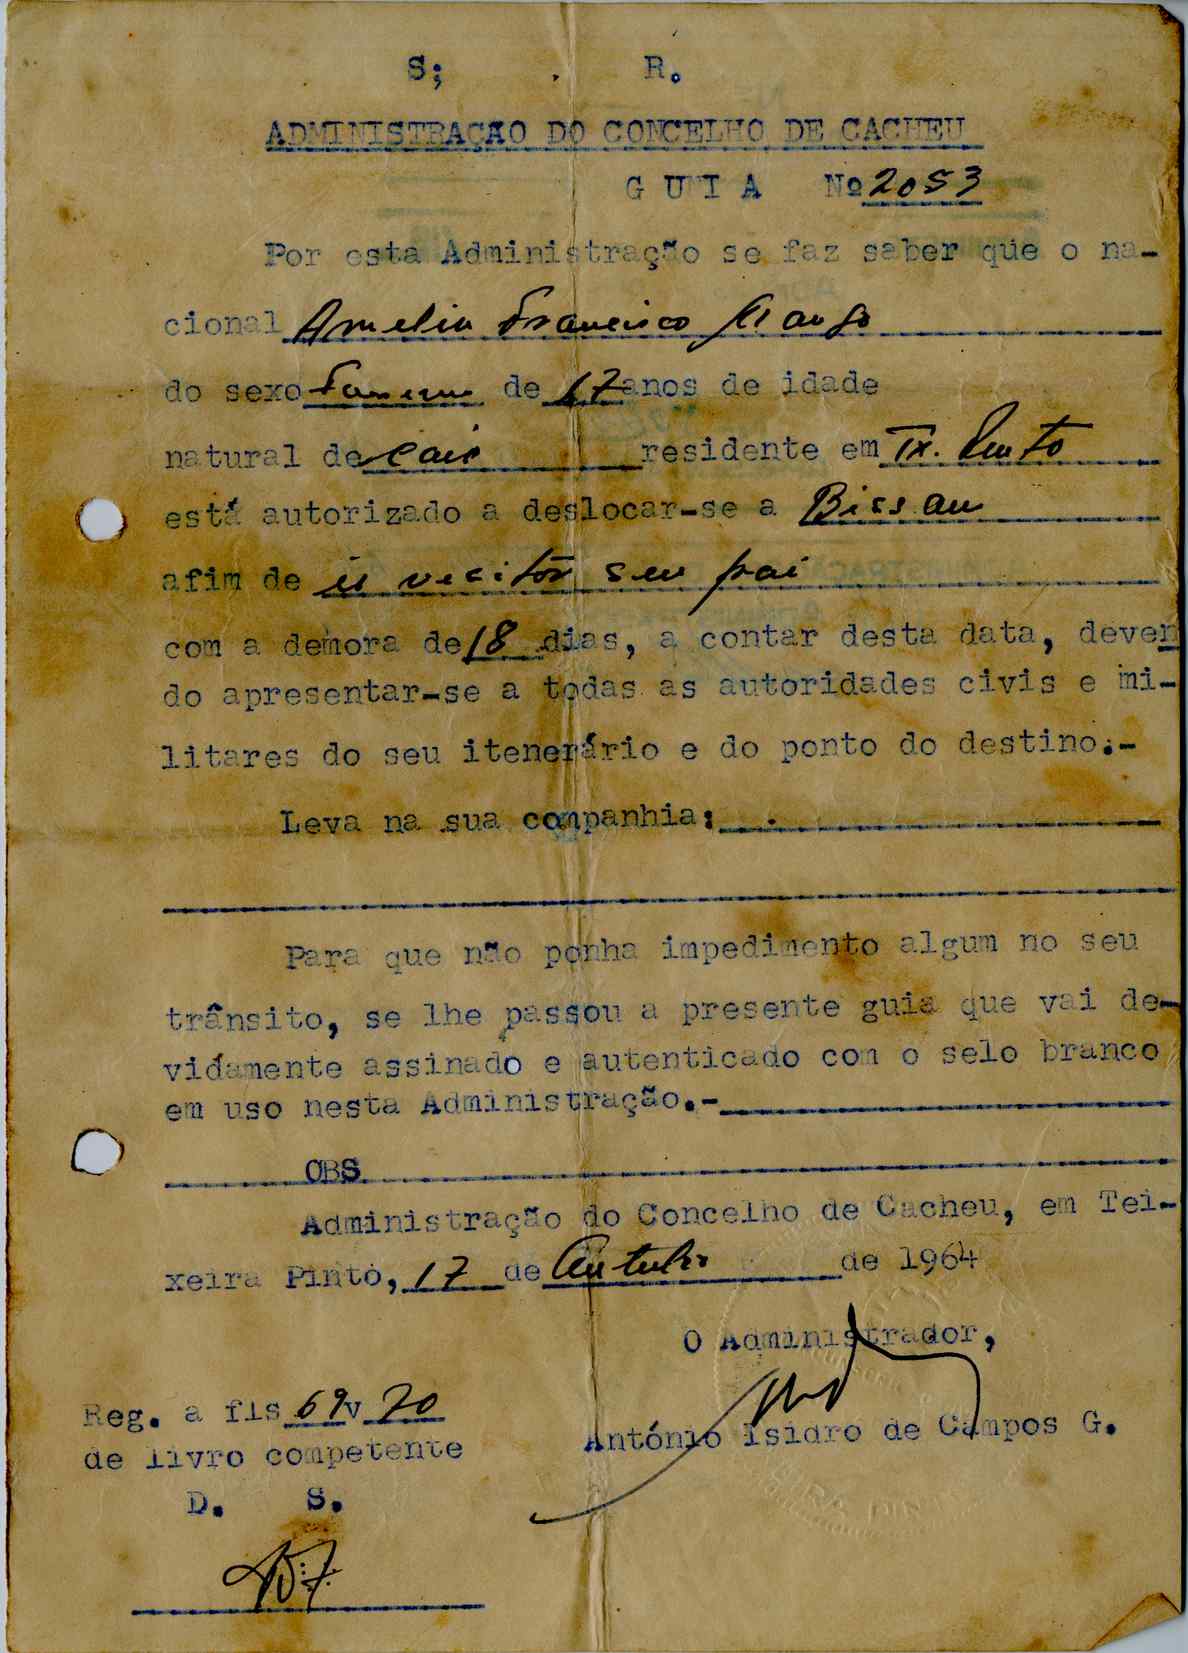 S; . R.
ADMINISTRAÇÃO DO CONCELHO DE CACHEU
G U I A Nº 2053
Por esta Administração se faz saber que o na-
cional Amelia Francisco
do sexo de 17 anos de idade
natural de residente em Tx. Pinto
está autorizado a deslocar-se a Bissau
afim de ir vesitar seu pai
com a demora de 18 dias, a contar desta data, deven
do apresentar-se a todas as autoridades civis e mi-
litares do seu itenerário e do ponto do destino.-
Leva na sua companhia:
Para que não ponha impedimento algum no seu
trânsito, se lhe passou a presente guia que vai de-
vidamente assinado e autenticado com o selo branco
em uso nesta Administração.-
OBS
Administração do Concelho de Cacheu, em Tei-
xeira Pinto, 17 de de 1964
O Administrador,
Reg. a fls 69 v 70
António Isidro de Campos G.
de livro competente
D. S.